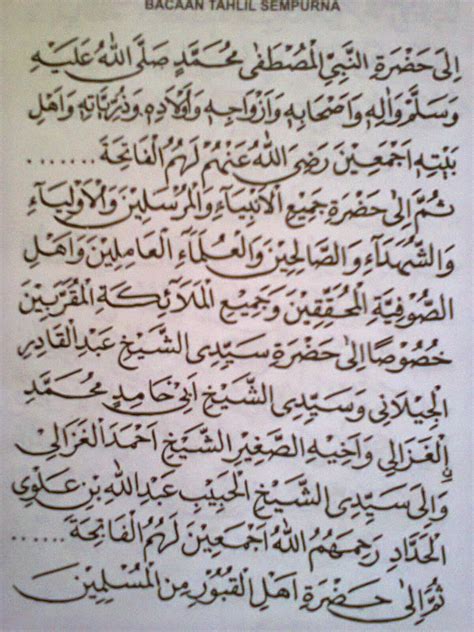 BACAAN TAHLIL SEMPURNA
اِلَى حَضْرَةِ النَّبِيِّ الْمُصْطَفٰى مُحَمَّدٍ صَلَّى اللهُ عَلَيْهِ
وَسَلَّمَ وَاٰلِهِ وَاَصْحَابِهِ وَاَزْوَاجِهِ وَاَوْلَادِهِ وَذُرِّيَّاتِهِ وَاَهْلِ
بَيْتِهِ اَجْمَعِيْنَ رَضِيَ اللهُ عَنْهُمْ لَهُمُ الْفَاتِحَةَ .......
ثُمَّ اِلَى حَضْرَةِ جَمِيْعِ الْاَنْبِيَآءِ وَالْمُرْسَلِيْنَ وَالْاَوْلِيَآءِ
وَالشُّهَدَآءِ وَالصَّالِحِيْنَ وَالْعُلَمَآءِ الْعَامِلِيْنَ وَاَهْلِ
الصُّوْفِيَّةِ الْمُحَقِّقِيْنَ وَجَمِيْعِ الْمَلَآئِكَةِ الْمُقَرَّبِيْنَ
خُصُوْصًا اِلَى حَضْرَةِ سَيِّدِى الشَّيْخِ عَبْدِ الْقَادِرِ
الْجِيْلَانِي وَسَيِّدِى الشَّيْخِ اَبِيْ حَامِدٍ مُحَمَّدٍ
الْغَزَالِي وَاَخِيْهِ الصَّغِيْرِ الشَّيْخِ اَحْمَدَ الْغَزَالِي
وَاِلَى سَيِّدِى الشَّيْخِ الْحَبِيْبِ عَبْدِ اللهِ بْنِ عَلَوِي
الْحَدَّادِ رَحِمَهُمُ اللهُ اَجْمَعِيْنَ لَهُمُ الْفَاتِحَةَ ......
ثُمَّ اِلَى حَضْرَةِ اَهْلِ الْقُبُوْرِ مِنَ الْمُسْلِمِيْنَ